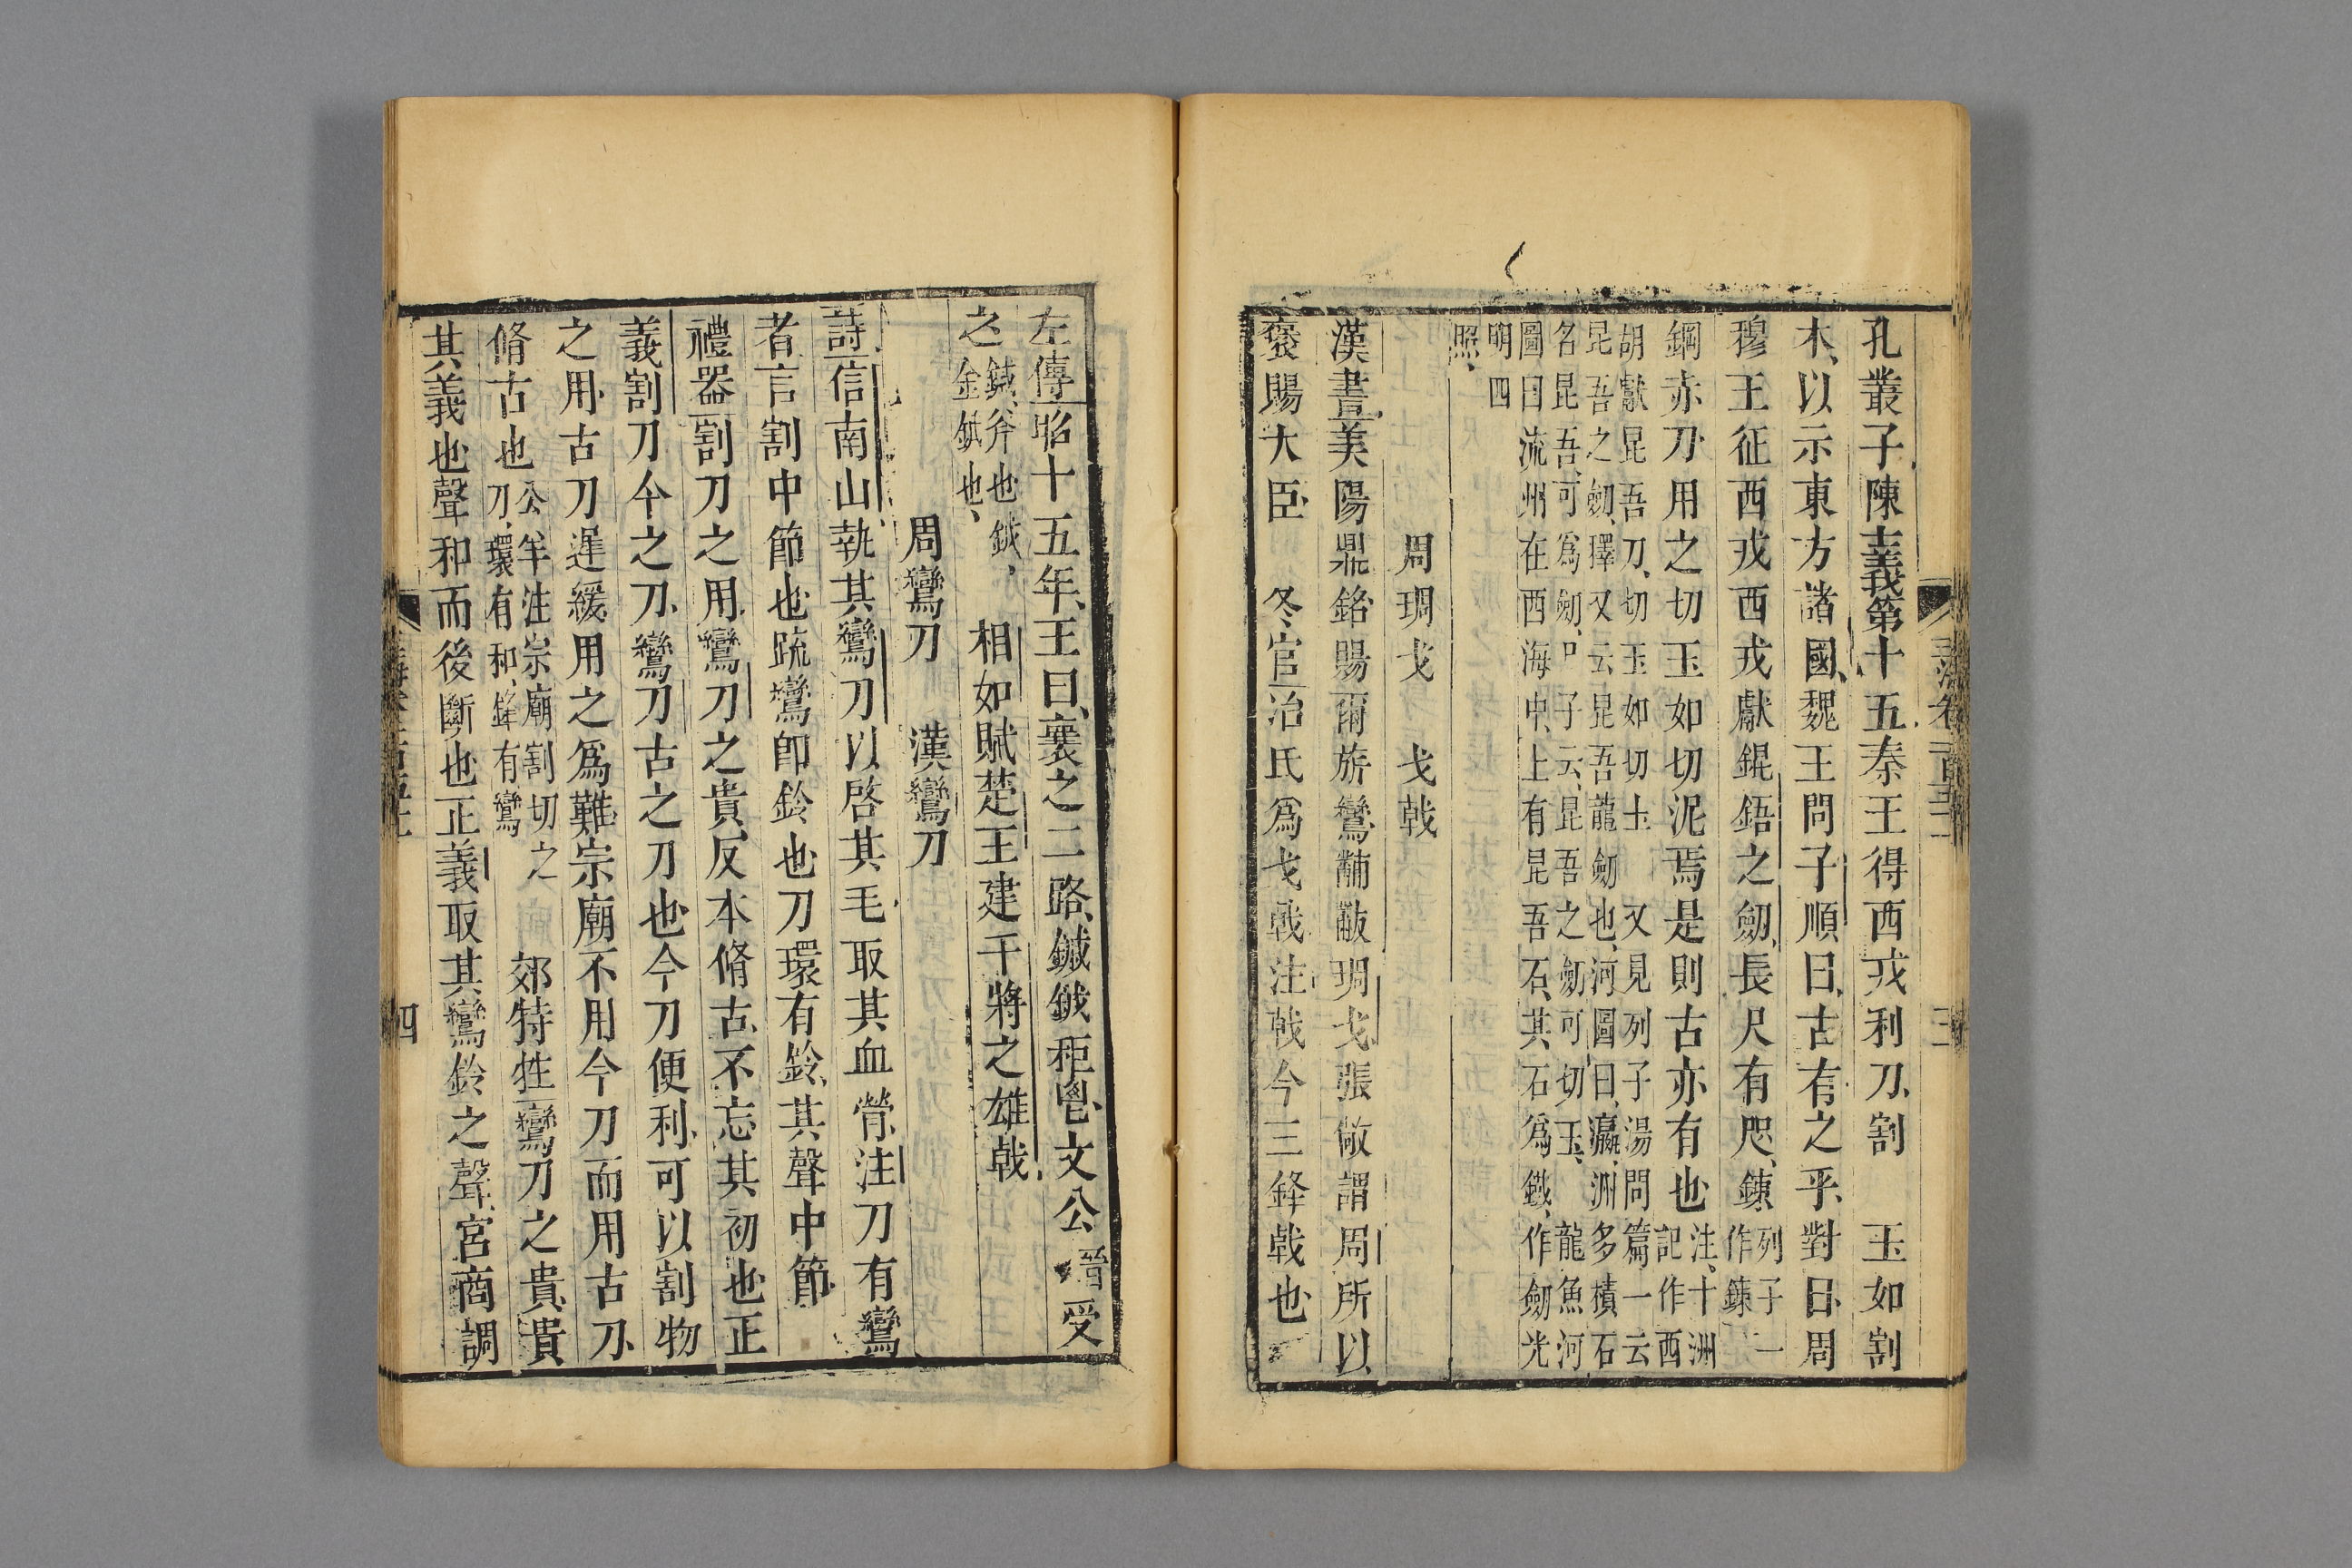 孔叢子陳士義第十五秦王得西戎利刀割　玉如割
木以示東方諸國魏王問子順曰古有之乎對曰周
穆王征西戎西戎獻錕鋙之劒長尺有咫鍊列子一
作鍊
鋼赤刀用之切玉如切泥焉是則古亦有也注十洲
記作西
胡獻昆吾刀切玉如切土　又見列子湯問篇一云
昆吾之劒又云昆吾龍劒也河圖曰瀛洲多積石
名昆吾可爲劒尸子云昆吾之劒可切玉龍魚河
圖曰流州在西海中上有昆吾石其石爲鐵作劒光
明四
照
周琱戈　戈戟
漢書美陽鼎銘賜爾旂鸞黼黻琱戈張敞謂周所以
褒賜大臣　冬官冶氏爲戈戟注戟今三鋒戟也
左傳昭十五年王曰襄之二路鏚鉞秬鬯文公受
之鏚斧也鉞
金鉞也　相如賦楚王建干將之雄戟
周鸞刀　漢鸞刀
詩信南山執其鸞刀以啓其毛取其血膋注刀有鸞
者言割中節也疏鸞卽鈴也刀環有鈴其聲中節
禮器割刀之用鸞刀之貴反本脩古不忘其初也正
義割刀今之刀鸞刀古之刀也今刀便利可以割物
之用古刀遲緩用之爲難宗廟不用今刀而用古刀
脩古也公羊注宗廟割切之
刀環有和鋒有鸞　郊特牲鸞刀之貴貴
其義也聲和而後斷也正義取其鸞鈴之聲宮商調
四